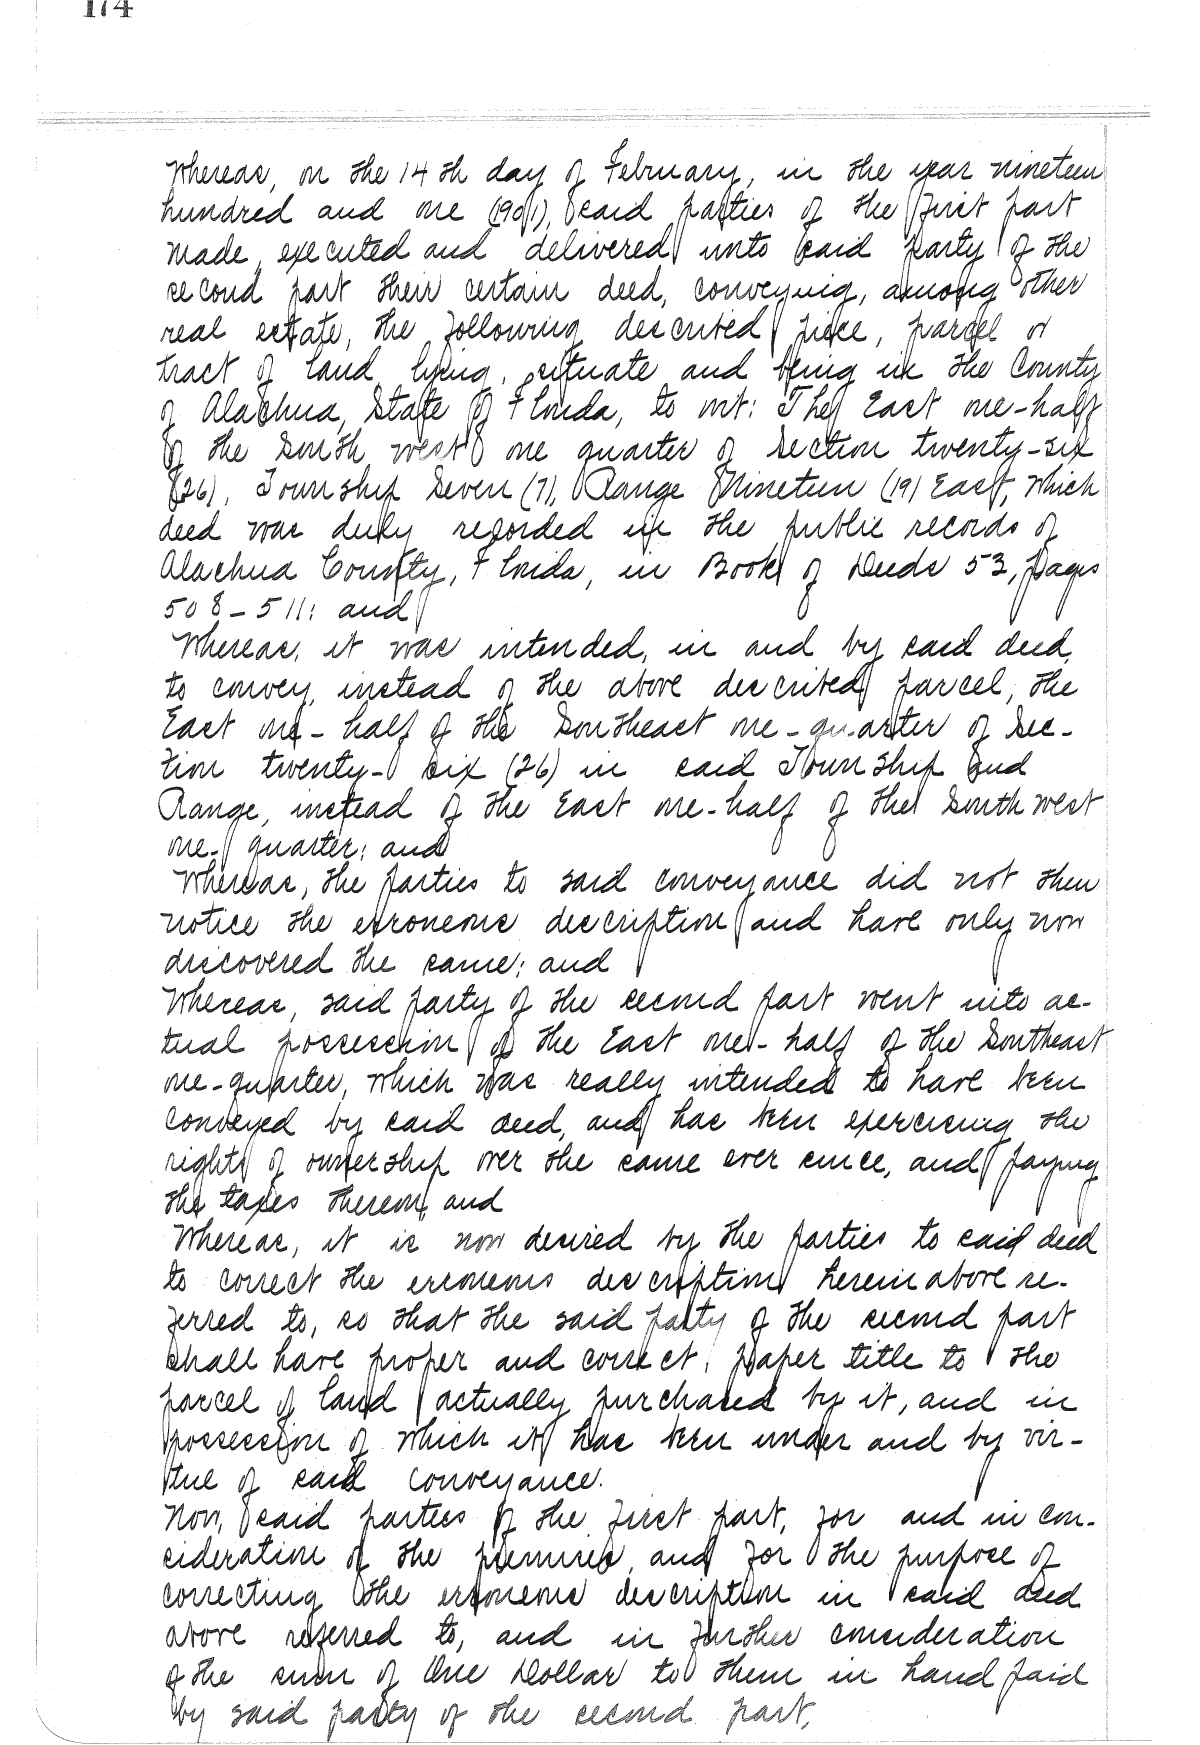 174
Whereas, on the 14th day of February, in the year nineteen
hundred and one (1901), said parties of the first part
made, executed and delivered unto said party of the
second part their certain deed, conveying, among other
real estate, the following described piece, parcel or
tract of land lying, situate and being in the County
of Alachua, State of Florida, to wit: The East one-half
of the South west one quarter of Section twenty-six
(26), Township Seven (7), Range Nineteen (19) East, which
deed was duly recorded in the public records of
Alachua County, Florida, in Book of Deeds 53, pages
508-511; and
Whereas, it was intended, in and by said deed,
to convey, instead of the above described parcel, the
East one-half of the Southeast one-quarter of Sec-
tion twenty-six (26) in said Township and
Range, instead of the East one-half of the Southwest
one-quarter; and
Whereas, the parties to said conveyance did not then
notice the erroneous description and have only now
discovered the same; and
Whereas, said party of the second part went into ac-
tual possession of the East one-half of the Southeast
one-quarter, which was really intended to have been
conveyed by said deed, and has been exercising the
rights of ownership over the same ever since, and paying
the taxes thereon, and
Whereas, it is now desired by the parties to said deed
to correct the erroneous description hereinabove re-
ferred to, so that the said party of the second part
shall have proper and correct, paper title to the
parcel of land actually purchased by it, and in
possession of which it has been under and by vir-
tue of said conveyance.
Now, said parties of the first part, for and in con-
sideration of the premises, and for the purpose of
correcting the erroneous description in said deed
above referred to, and in further consideration
of the sum of One Dollar to them in hand paid
by said party of the second part,